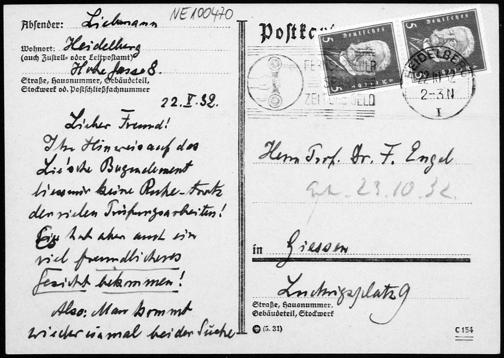 NE100470
Absender: Liebmann
Wohnort: Heidelberg
(auch Zustell- oder Leitpostamt)
Hohe Gasse 8.
Straße, Hausnummer, Gebäudeteil,
Stockwerk od. Postschließfachnummer
22.X.32.
Lieber Freund!
Ihr Hinweis auf das
Lie'sche Bogenelement
liess mir keine Ruhe trotz
der vielen Prüfungsarbeiten!
Es hat aber auch ein
viel freundlicheres
Gesicht bekommen!
Also: Man kommt
wieder einmal bei der Suche
Postkarte
5 Deutsches
5 Deutsches
HEIDELBERG
2-3.N
I
Herrn Prof. Dr. F. Engel
23.10.32.
in Giessen
Ludwigsplatz 9
Straße, Hausnummer,
Gebäudeteil, Stockwerk
(5. 31)
C 154